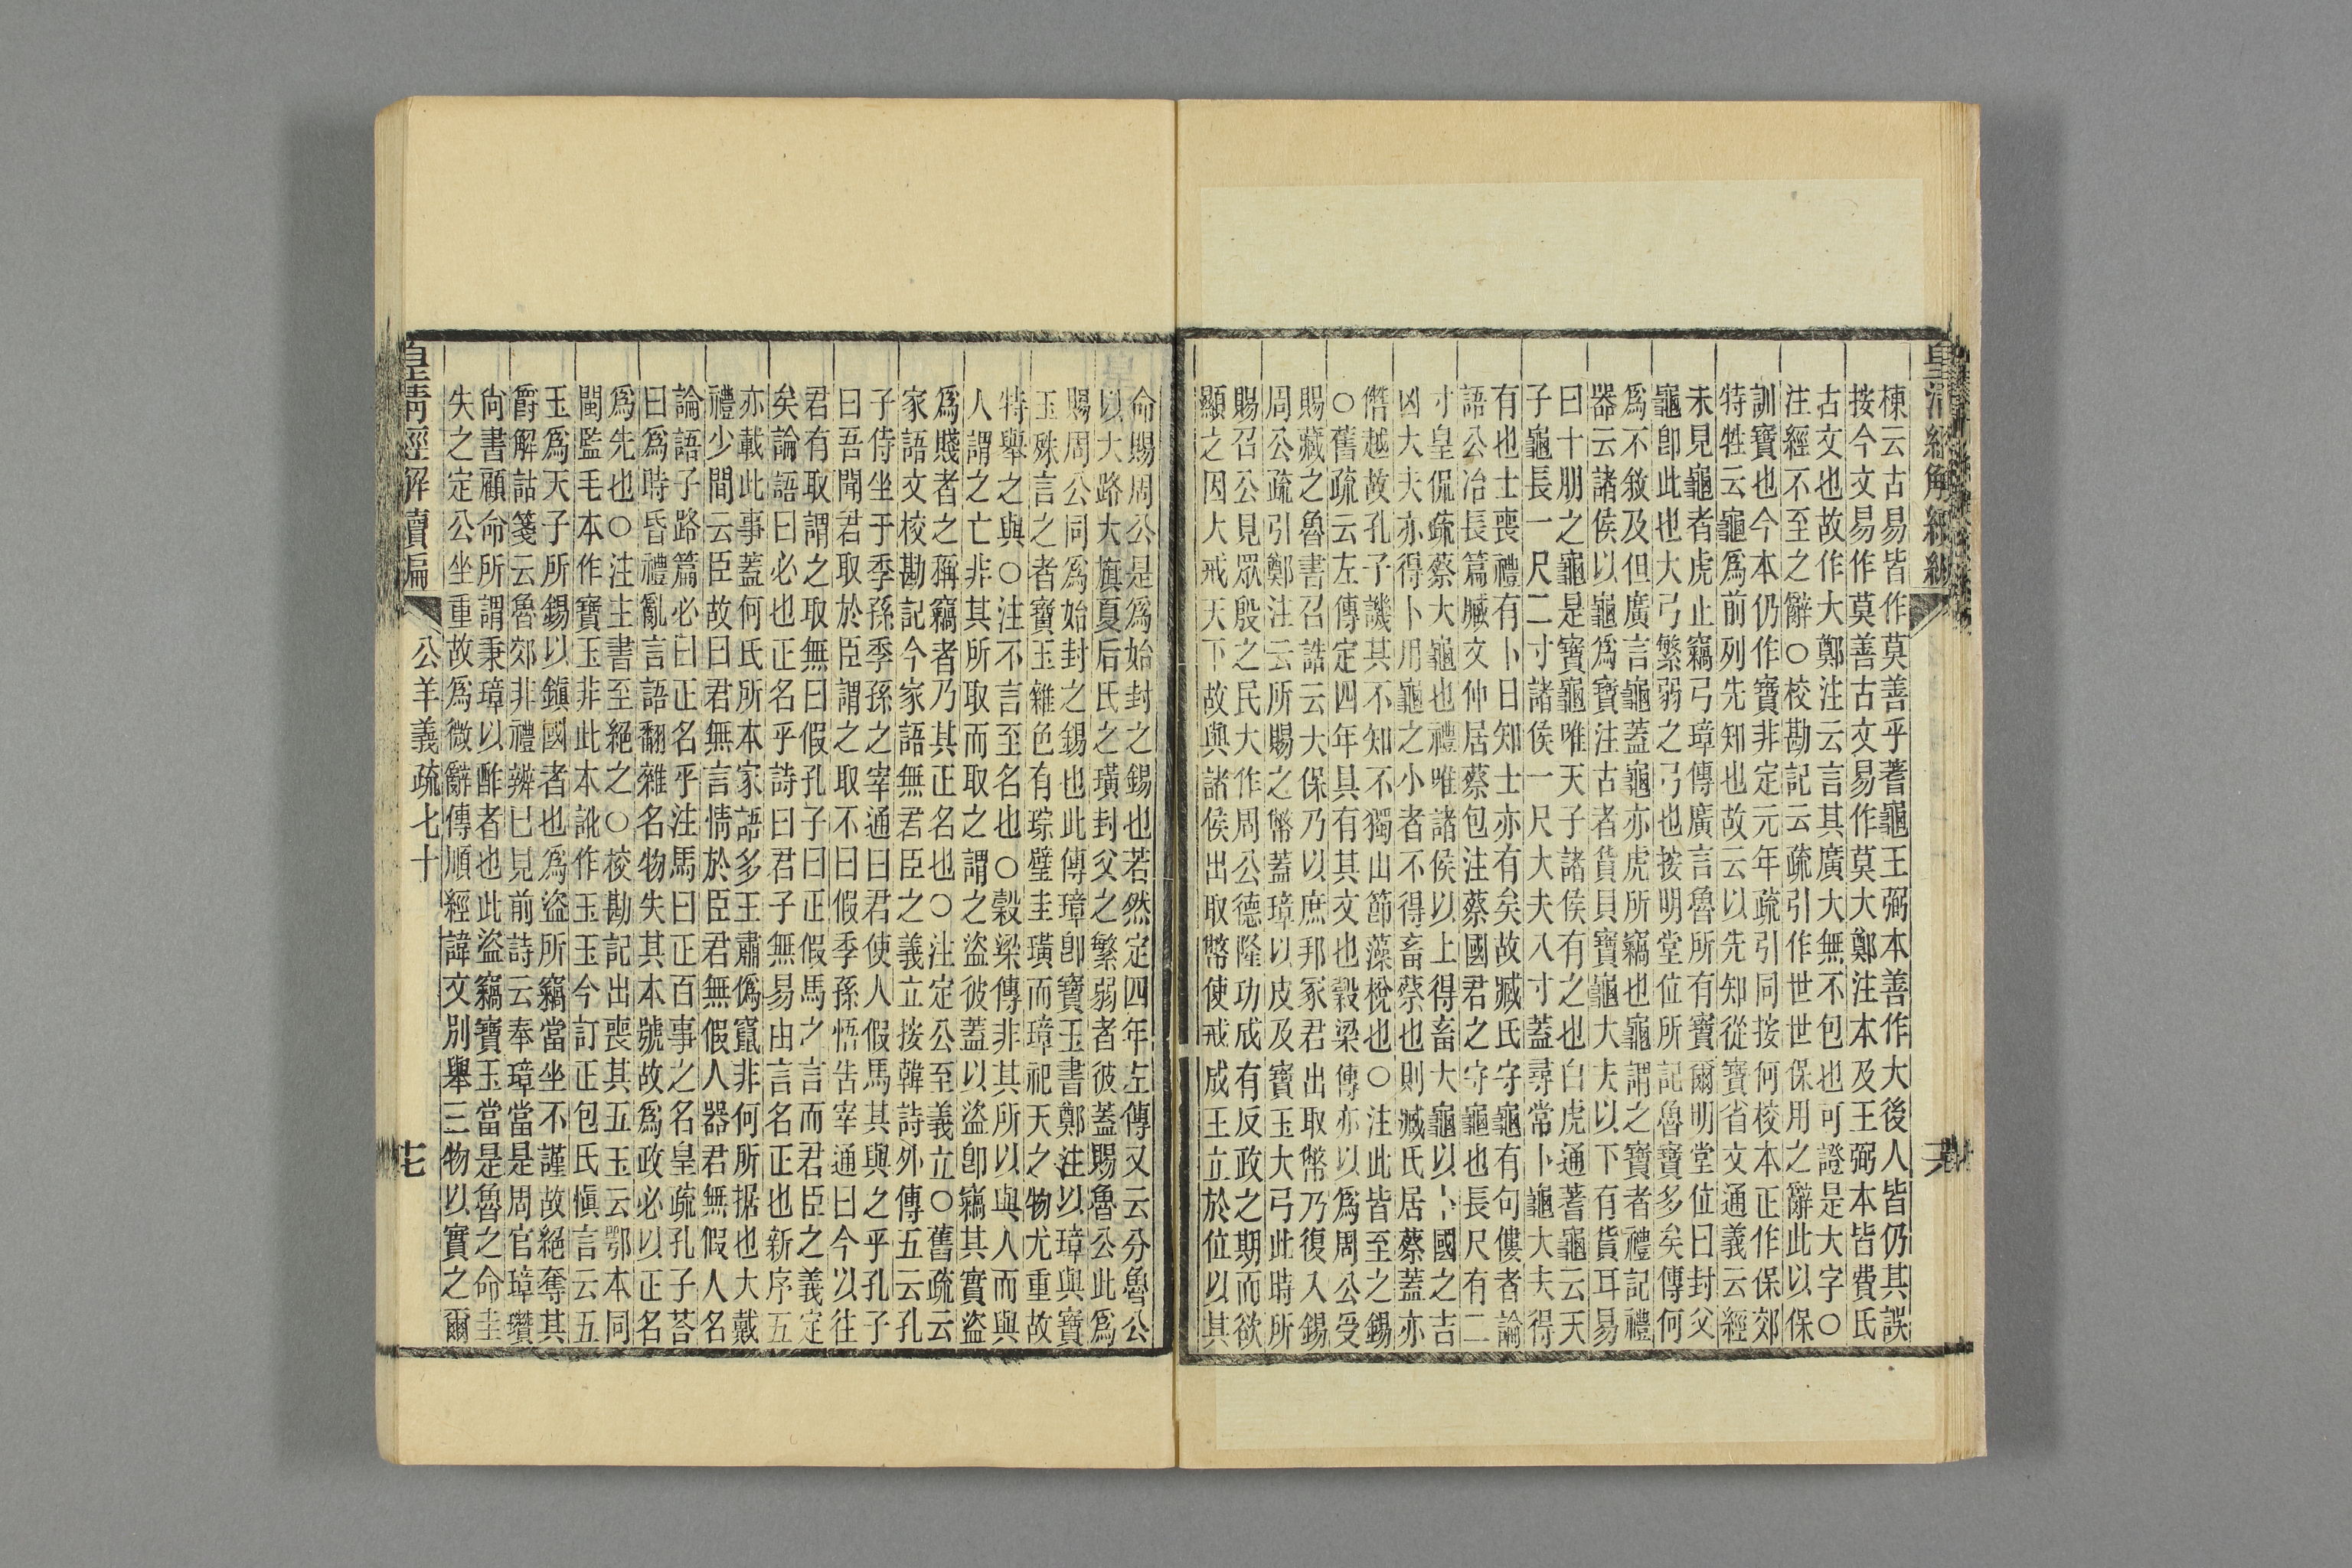 棟云古易皆作莫善乎蓍龜王弼本善作大後人皆仍其誤
按今文易作莫善古文易作莫大鄭注本及王弼本皆費氏
古文也故作大鄭注云言其廣大無不包也可證是大字〇
注經不至之辭〇校勘記云疏引作世世保用之辭此以保
訓寶也今本仍作寶非定元年疏引同按何校本正作保郊
特牲云龜爲前列先知也故云以先知從寶省文通義云經
未見龜者虎止竊弓璋傳廣言魯所有寶爾明堂位曰封父
龜卽此也大弓繁弱之弓也按明堂位所記魯寶多矣傳何
爲不敘及但廣言龜蓋龜亦虎所竊也龜謂之寶者禮記禮
器云諸侯以龜爲寶注古者貨貝寶龜大夫以下有貨耳易
曰十朋之龜是寶龜唯天子諸侯有之也白虎通蓍龜云天
子龜長一尺二寸諸侯一尺大夫八寸蓋尋常卜龜大夫得
有也士喪禮有卜日知士亦有矣故臧氏守龜有句僂者論
語公冶長篇臧文仲居蔡包注蔡國君之守龜也長尺有二
寸皇侃疏蔡大龜也禮唯諸侯以上得畜大龜以卜國之吉
凶大夫亦得卜用龜之小者不得畜蔡也則臧氏居蔡蓋亦
僭越故孔子譏其不知不獨山節藻梲也〇注此皆至之錫
〇舊疏云左傳定四年具有其文也穀梁傳亦以爲周公受
賜藏之魯書召誥云大保乃以庶邦冢君出取幣乃復入錫
周公疏引鄭注云所賜之幣蓋璋以皮及寶玉大弓此時所
賜召公見眾殷之民大作周公德隆功成有反政之期而欲
顯之因大戒天下故與諸侯出取幣使戒成王立於位以其
命賜周公是爲始封之錫也若然定四年左傳又云分魯公
以大路大旗夏后氏之璜封父之繁弱者彼蓋賜魯公此爲
賜周公同爲始封之錫也此傳璋卽寶玉書鄭注以璋與寶
玉殊言之者寶玉雜色有琮璧圭璜而璋祀天之物尤重故
特舉之與〇注不言至名也〇穀梁傳非其所以與人而與
人謂之亡非其所取而取之謂之盜彼蓋以盜卽竊其實盜
爲賤者之稱竊者乃其正名也〇注定公至義立〇舊疏云
家語文校勘記今家語無君臣之義立按韓詩外傳五云孔
子侍坐于季孫季孫之宰通曰君使人假馬其與之乎孔子
曰吾聞君取於臣謂之取不曰假季孫悟告宰通曰今以往
君有取謂之取無曰假孔子曰正假馬之言而君臣之義定
矣論語曰必也正名乎詩曰君子無易由言名正也新序五
亦載此事蓋何氏所本家語多王肅僞竄非何所据也大戴
禮少間云臣故曰君無言情於臣君無假人器君無假人名
論語子路篇必曰正名乎注馬曰正百事之名皇疏孔子荅
曰爲時昏禮亂言語翻雜名物失其本號故爲政必以正名
爲先也〇注主書至絕之〇校勘記出喪其五玉云鄂本同
閩監毛本作寶玉非此本訛作玉玉今訂正包氏愼言云五
玉爲天子所錫以鎭國者也爲盜所竊當坐不謹故絕奪其
爵解詁箋云魯郊非禮辨已見前詩云奉璋當是周官璋瓚
尙書顧命所謂秉璋以酢者也此盜竊寶玉當是魯之命圭
失之定公坐重故爲微辭傳順經諱文別舉三物以實之爾
皇淸經解續編
公羊義疏七十
七